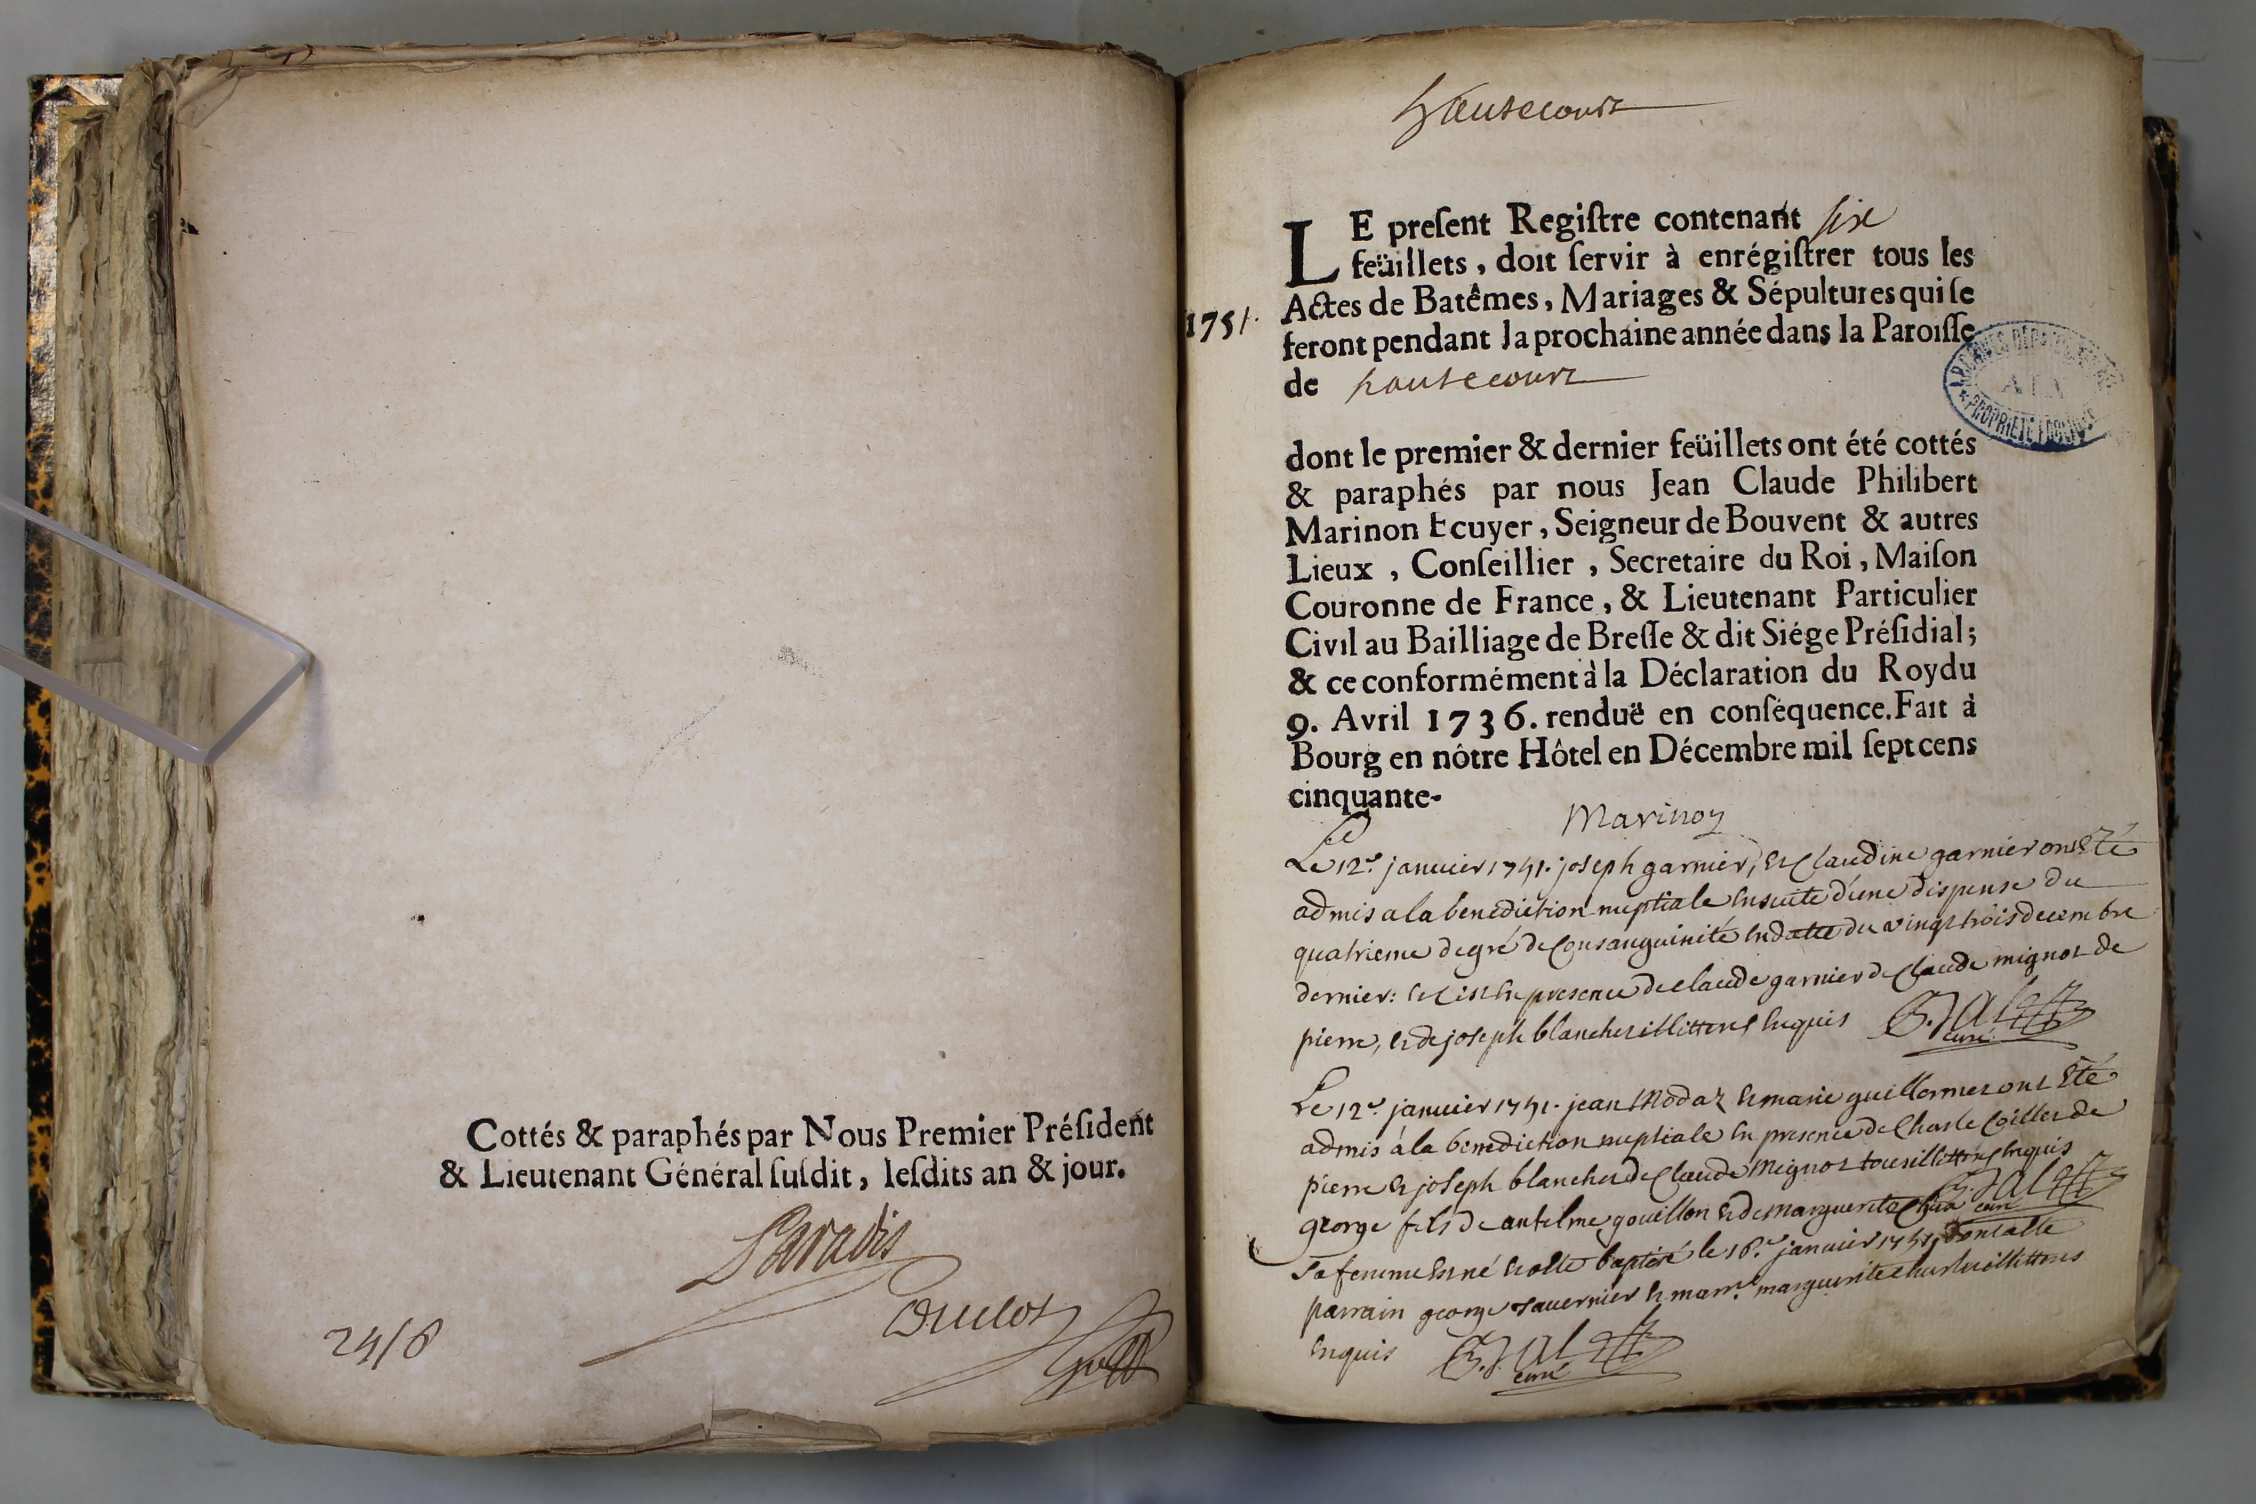 Cottés & paraphés par Nous Premier Présıdent
& Lieutenant Général ſuſdit, leſdits an & jour.
Paradis
Duclot
24/8
hautecourt
LE preſent Regiſtre contenant six
feüillets, doit ſervir à enrégiſtrer tous les
Actes de Batêmes, Mariages & Sépultures qui ſe
1751.
feront pendant la prochaine année dans la Paroiſſe
de hautecourt
ARCHIVES DÉP
AIN
PROPRIÉTÉ PUBLIQUE
dont le premier & dernier feüillets ont été cottés
& paraphés par nous Jean Claude Philibert
Marinon Ecuyer, Seigneur de Bouvent & autres
Lieux, Conſeillier, Secretaire du Roi, Maiſon
Couronne de France, & Lieutenant Particulier
Civil au Bailliage de Breſſe & dit Siége Préſidial;
& ce conformément à la Déclaration du Roy du
9. Avril 1736. renduë en conſéquence. Fait à
Bourg en nôtre Hôtel en Décembre mil ſept cens
cinquante-
Marinon
Le 12.e janvier 1751. joseph garnier, et Claudine garnier ont été
admis a la benediction nuptiale ensuite d'une dispense du
quatrieme degré de Consanguinité en datte du vingt trois decembre
dernier: et c'est en presence de claude garnier de Claude mignot de
pierre, et de joseph blanchet illittérés enquis
curé
Le 12.e janvier 1751. jean et marie guillermet ont été
admis à la benediction nuptiale en presence de Charle de
pierre et joseph blanchet de Claude Mignot tous illittérés enquis
curé
george fils de antelme gouillon et de marguerite
sa femme est né et a été baptisé le 16.e janvier 1751, dont a été
parrain george tavernier et marr.e marguerite illittérés
enquis
curé